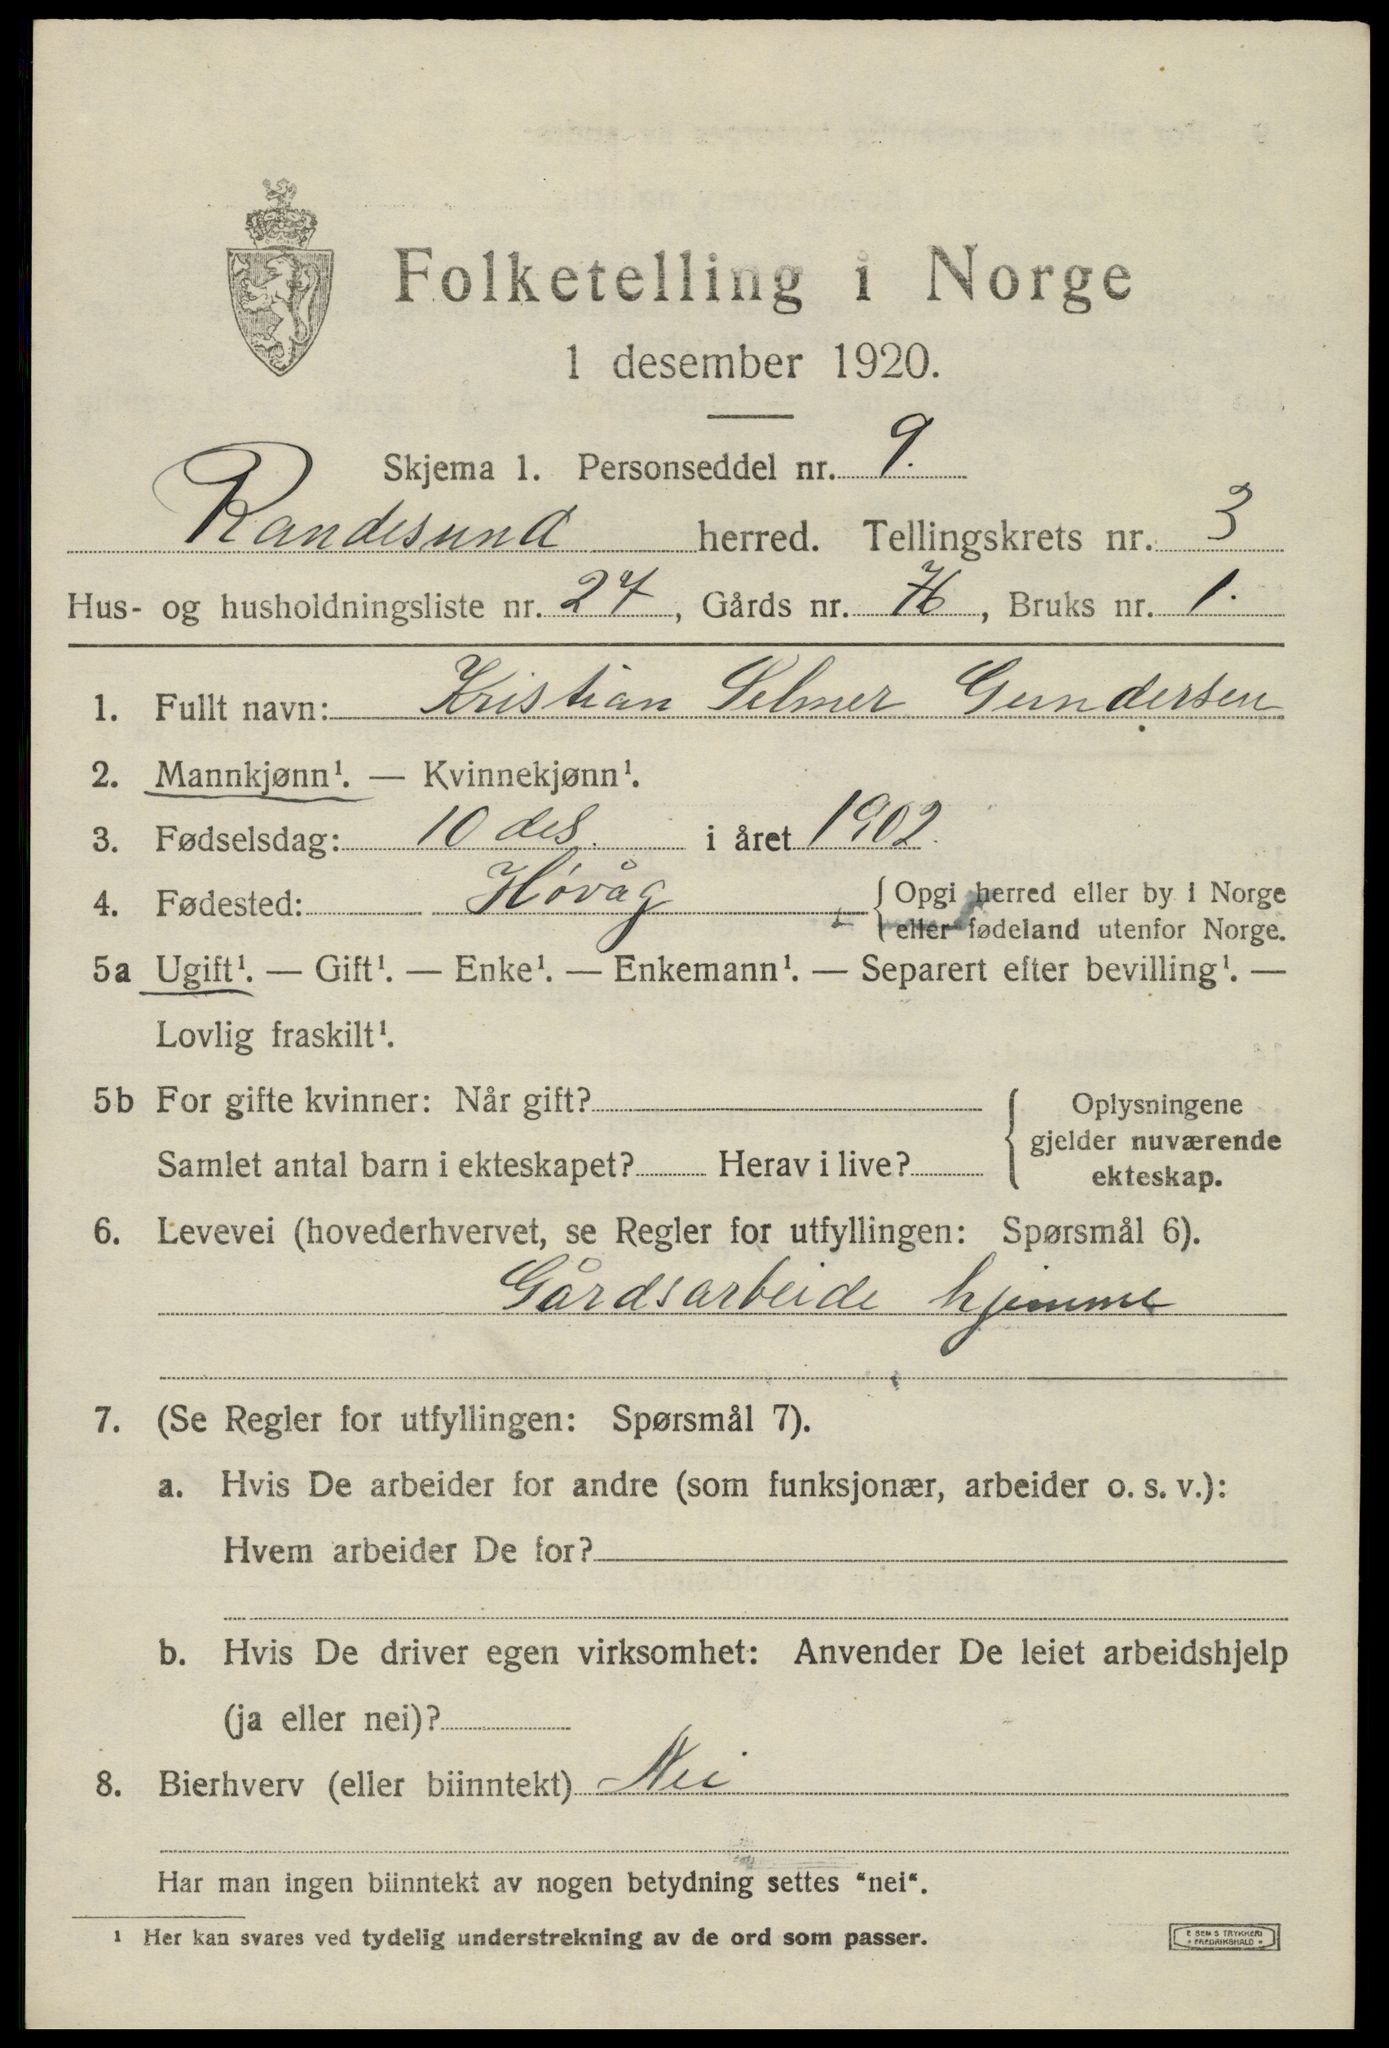 Folketelling i Norge
1 desember 1920.
Skjema 1. Personseddel nr. 9.
Randesund herred. Tellingskrets nr. 3
Hus- og husholdningsliste nr. 27, Gårds nr. 76, Bruks nr. 1.
1. Fullt navn: Kristian Selmer Gundersen
2. Mannkjønn¹. — Kvinnekjønn¹.
3. Fødselsdag: 10 des. i året 1902.
4. Fødested: Høvåg { Opgi herred eller by i Norge
eller fødeland utenfor Norge.
5a Ugift¹. — Gift¹. — Enke¹. — Enkemann¹. — Separert efter bevilling¹. —
Lovlig fraskilt¹.
5b For gifte kvinner: Når gift?
Samlet antal barn i ekteskapet? Herav i live?
{ Oplysningene
gjelder nuværende
ekteskap.
6. Levevei (hovederhvervet, se Regler for utfyllingen: Spørsmål 6).
Gårdsarbeide hjemme
7. (Se Regler for utfyllingen: Spørsmål 7).
a. Hvis De arbeider for andre (som funksjonær, arbeider o. s. v.):
Hvem arbeider De for?
b. Hvis De driver egen virksomhet: Anvender De leiet arbeidshjelp
(ja eller nei)?
8. Bierhverv (eller biinntekt) Nei
Har man ingen biinntekt av nogen betydning settes “nei“.
¹ Her kan svares ved tydelig understrekning av de ord som passer.
E SEM S TRYKKERI
• FREDRIKSHALD •